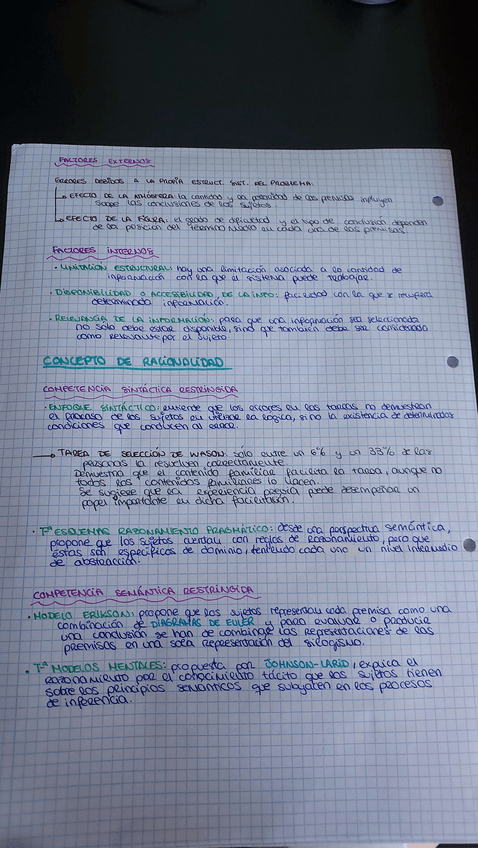 FACTORES EXTERNOS
ERRORES DEBIDOS A LA PROPIA ESTRUCT. INST. DEL PROBLEMA:
EFECTO DE LA ATMÓSFERA: la cantidad y la cualidad de las premisas influyen
sobre las conclusiones de los sujetos
EFECTO DE LA FIGURA: el grado de dificultad y el tipo de conclusión dependen
de la posición del término medio en cada una de las premisas.
FACTORES INTERNOS
· LIMITACIÓN ESTRUCTURAL: hay una limitación asociada a la cantidad de
información con la que el sistema puede trabajar.
· DISPONIBILIDAD O ACCESIBILIDAD DE LA INFO: facilidad con la que se recupera
determinada información.
· RELEVANCIA DE LA INFORMACIÓN: para que una información sea seleccionada
no solo debe estar disponible, sino que también debe ser considerada
como relevante por el sujeto.
CONCEPTO DE RACIONALIDAD
COMPETENCIA SINTÁCTICA RESTRINGIDA
· ENFOQUE SINTÁCTICO: entiende que los errores en las tareas no demuestran
el fracaso de los sujetos en utilizar la lógica, si no la existencia de determinadas
condiciones que conducen al error.
→ TAREA DE SELECCIÓN DE WASON: sólo entre un 6% y un 33% de las
personas la resuelven correctamente.
Demuestra que el contenido familiar facilita la tarea, aunque no
todos los contenidos familiares lo hacen.
Se sugiere que la experiencia previa puede desempeñar un
papel importante en dicha facilitación.
· Tª ESQUEMAS RAZONAMIENTO PRAGMÁTICO: desde una perspectiva semántica,
propone que los sujetos cuentan con reglas de razonamiento, pero que
éstas son específicas de dominio, teniendo cada uno un nivel intermedio
de abstracción.
COMPETENCIA SEMÁNTICA RESTRINGIDA
· MODELO ERIKSON: propone que los sujetos representan cada premisa como una
combinación de DIAGRAMAS DE EULER y para evaluar o producir
una conclusión se han de combinar las representaciones de las
premisas en una sola representación del silogismo.
· Tª MODELOS MENTALES: propuesta por JOHNSON-LAIRD, explica el
razonamiento por el conocimiento tácito que los sujetos tienen
sobre los principios semánticos que subyacen en los procesos
de inferencia.